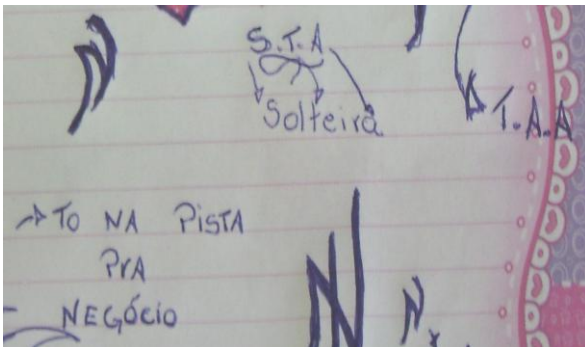 S.T.A
Solteira
T.A.A
→ TO NA PISTA
PrA
NEGÓCIO
N